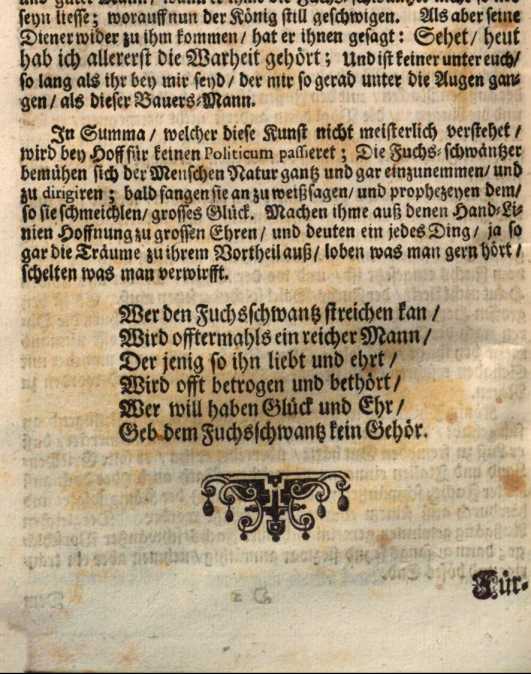 seyn liesse; worauff nun der König still geschwigen. Als aber seine
Diener wider zu ihm kommen / hat er ihnen gesagt: Sehet / heut
hab ich allererst die Warheit gehört; Und ist keiner unter euch /
so lang als ihr bey mir seyd / der mir so gerad unter die Augen gan-
gen / als dieser Bauers-Mann.
In Summa / welcher diese Kunst nicht meisterlich verstehet /
wird bey Hoff für keinen Politicum passieret; Die Fuchs-schwäntzer
bemühen sich der Menschen Natur gantz und gar einzunemmen / und
zu dirigiren; bald fangen sie an zu weißsagen / und prophezeyen dem /
so sie schmeichlen / grosses Glück. Machen ihme auß denen Hand-Li-
nien Hoffnung zu grossen Ehren / und deuten ein jedes Ding / ja so
gar die Träume zu ihrem Vortheil auß / loben was man gern hört /
schelten was man verwirfft.
Wer den Fuchsschwantz streichen kan /
Wird offtermahls ein reicher Mann /
Der jenig so ihn liebt und ehrt /
Wird offt betrogen und bethört /
Wer will haben Glück und Ehr /
Geb dem Fuchsschwantz kein Gehör.
Für-